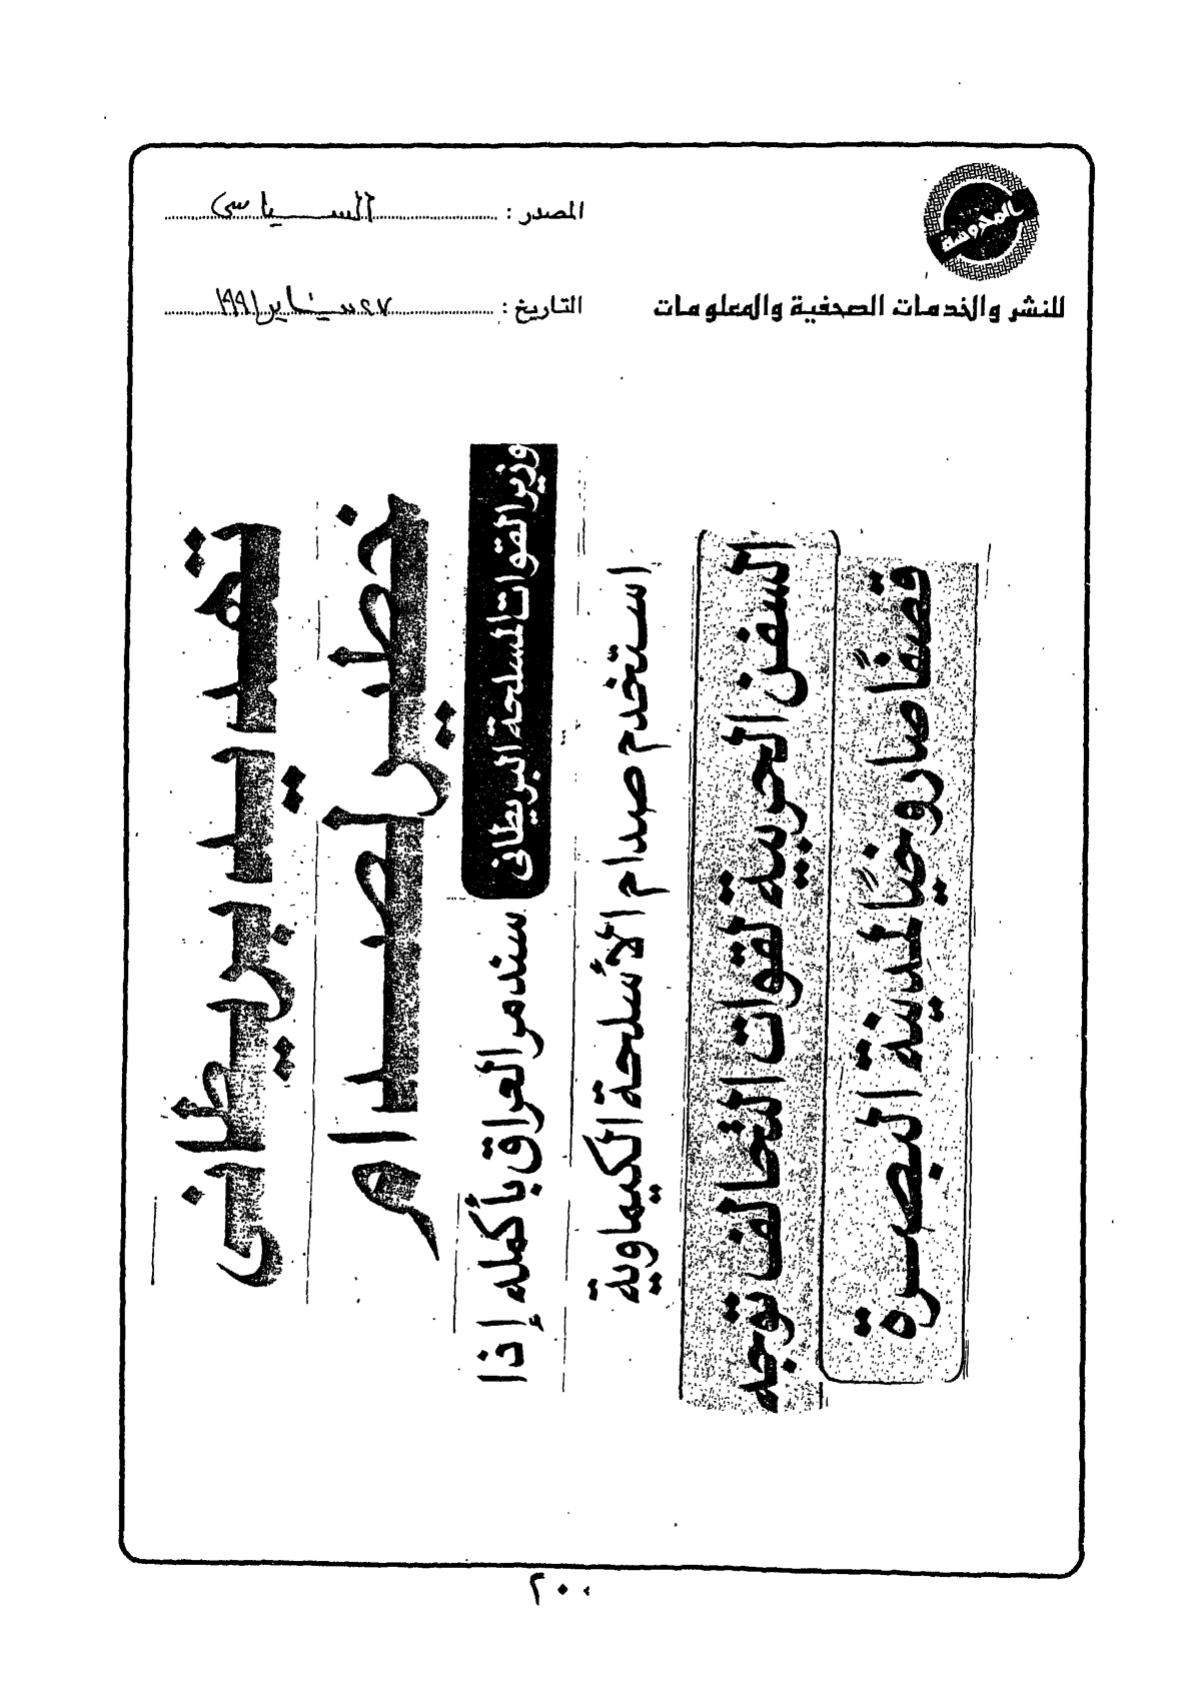 بالمحروسة
المصدر : السياسى
للنشر والخدمات الصحفية والمعلومات
التاريخ : ٢٧ يناير ١٩٩١
تهديد بريطانى
خطير لصدام
وزير القوات المسلحة البريطانى
سندمر العراق بأكمله إذا
استخدم صدام الأسلحة الكيماوية
السفن الحربية لقوات التحالف توجه
قصفًا صاروخيًا لمدينة البصرة